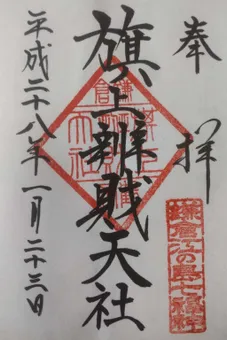 奉拝
鎌倉江の島七福神
旗上辨財天社
平成二十八年一月二十三日